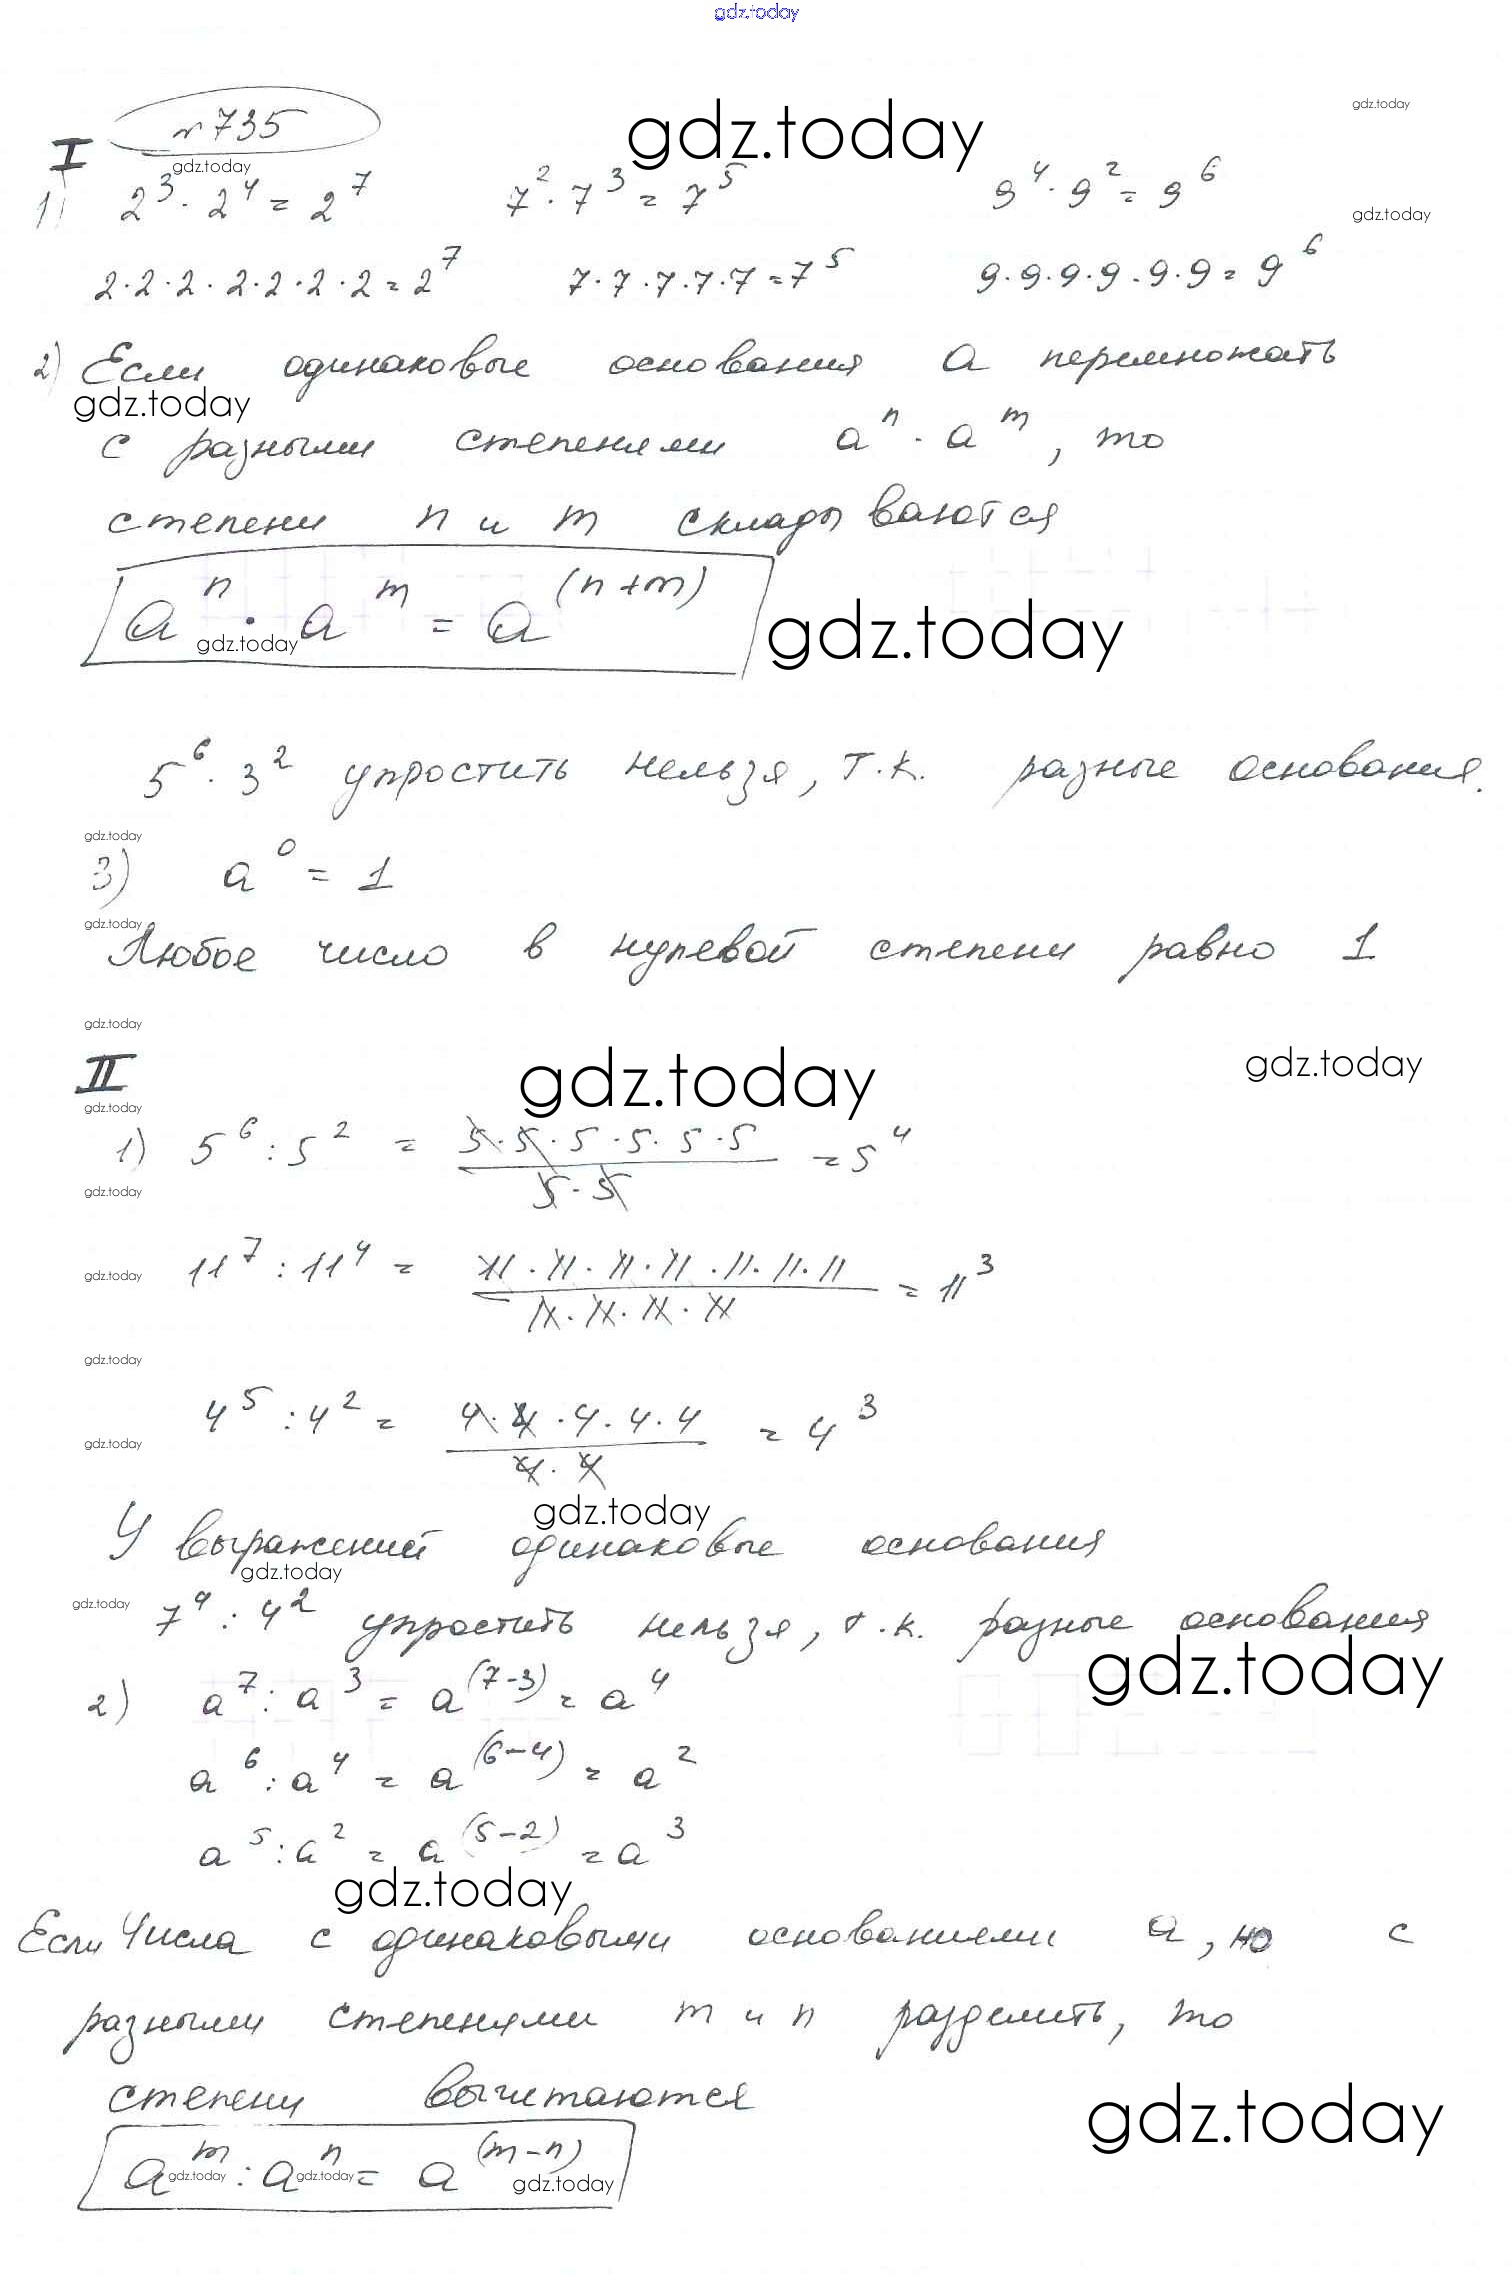 gdz.today
№735
gdz.today
gdz.today
I
gdz.today
1) 2³ · 2⁴ = 2⁷ 7² · 7³ = 7⁵ 9⁴ · 9² = 9⁶
gdz.today
2·2·2·2·2·2·2 = 2⁷ 7·7·7·7·7 = 7⁵ 9·9·9·9·9·9 = 9⁶
2) Если одинаковые основания a перемножать
gdz.today
с разными степенями aⁿ · aᵐ, то
степени n и m складываются
aⁿ · aᵐ = a⁽ⁿ⁺ᵐ⁾
gdz.today gdz.today
5⁶ · 3² упростить нельзя, т.к. разные основания.
gdz.today
3) a⁰ = 1
gdz.today
Любое число в нулевой степени равно 1
gdz.today
II
gdz.today gdz.today
gdz.today
1) 5⁶ : 5² = 5·5·5·5·5·5 / 5·5 = 5⁴
gdz.today
11⁷ : 11⁴ = 11·11·11·11·11·11·11 / 11·11·11·11 = 11³
gdz.today
gdz.today
4⁵ : 4² = 4·4·4·4·4 / 4·4 = 4³
gdz.today
gdz.today
У выражений одинаковые основания
gdz.today
gdz.today
7⁴ : 4² упростить нельзя, т.к. разные основания
gdz.today
2) a⁷ : a³ = a⁽⁷⁻³⁾ = a⁴
a⁶ : a⁴ = a⁽⁶⁻⁴⁾ = a²
a⁵ : a² = a⁽⁵⁻²⁾ = a³
gdz.today
Если числа с одинаковыми основаниями a, но с
разными степенями m и n разделить, то
степени вычитаются
gdz.today
aᵐ : aⁿ = a⁽ᵐ⁻ⁿ⁾
gdz.today gdz.today gdz.today